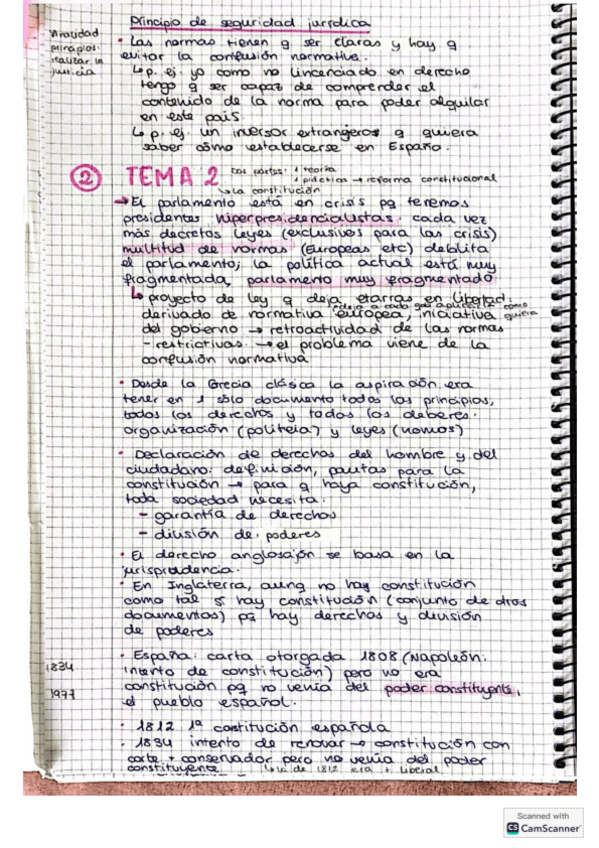 Principio de seguridad jurídica
finalidad
principios:
realizar la
justicia
• Las normas tienen q ser claras y hay q
evitar la confusión normativa.
↳ p. ej. yo como no lincenciado en derecho
tengo q ser capaz de comprender el
contenido de la norma para poder alquilar
en este país
↳ p. ej. un inversor extrangero q quiera
saber cómo establecerse en España.
② TEMA 2 dos partes: 1 teoría
1 práctica → reforma constitucional
↳ La constitución
→ El parlamento está en crisis pq tenemos
presidentes hiperpresidencialistas: cada vez
más decretos leyes (exclusivos para las crisis)
multitud de normas (Europeas etc) debilita
el parlamento; la política actual está muy
fragmentada, parlamento muy fragmentado
↳ proyecto de ley q deja etarras en libertad.
derivado de normativa europea, iniciativa
deja a cada país aplicarla como quiera
del gobierno → retroactividad de las normas
- restrictivas. → el problema viene de la
confusión normativa
• Desde la Grecia clásica la aspiración era
tener en 1 sólo documento todos los principios,
todos los derechos y todos los deberes.
organización (politeia) y leyes (nomos)
• Declaración de derechos del hombre y del
ciudadano: definición, pautas para la
constitución → para q haya constitución,
toda sociedad necesita:
- garantía de derechos
- división de poderes
• El derecho anglosajón se basa en la
jurisprudencia.
• En Inglaterra, aunq no hay constitución
como tal sí hay constitución (conjunto de otros
documentos) pq hay derechos y división
de poderes
• España: carta otorgada 1808 (Napoleón:
intento de constitución) pero no era
constitución pq no venía del poder constituyente,
el pueblo español.
1834
1977
• 1812 1ª constitución española
• 1834 intento de renovar → constitución con
corte + conservador pero no venía del poder
constituyente ↳ la de 1812 era + liberal
Scanned with
CS CamScanner